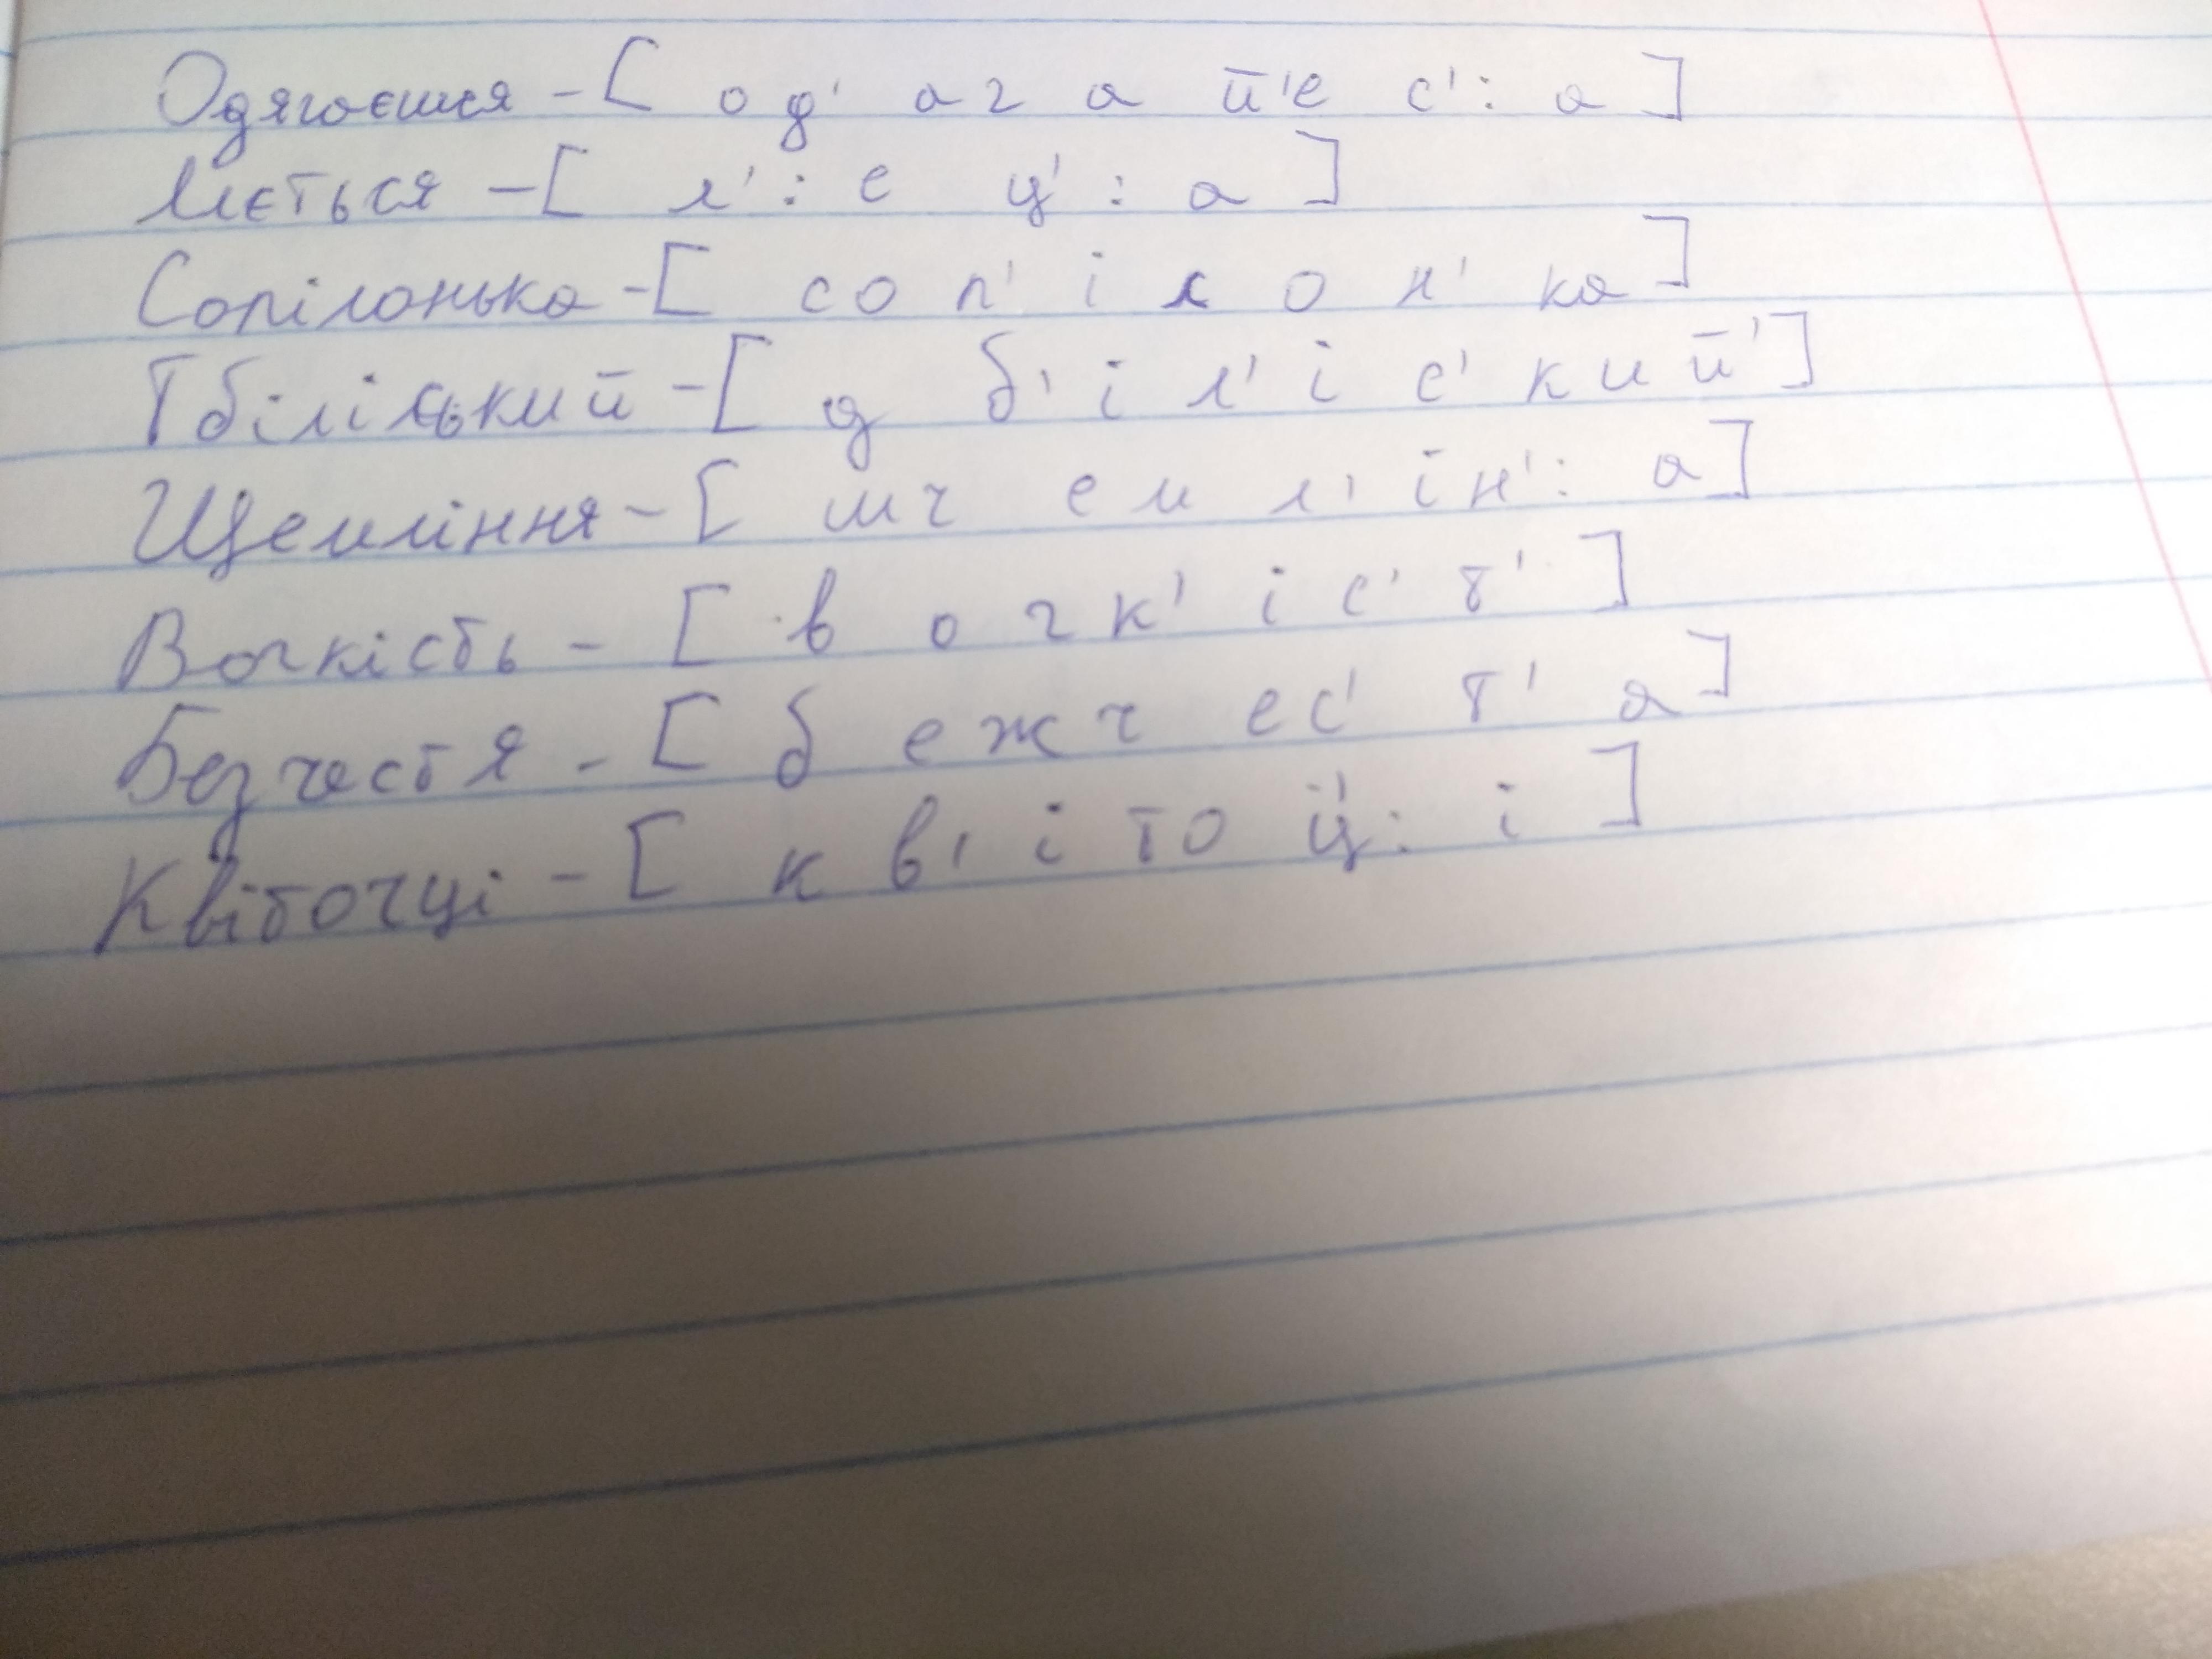 Одягаєшся - [ о д' а г а й'е с': а ]
Ллється - [ л' : е ц' : а ]
Сопілонька - [ с о п' і л о н' ка ]
Тбіліський - [ д б' і л' і с' к и й' ]
Щемління - [ ш ч е м л' і н' : а ]
Вогкість - [ в о г к' і с' т' ]
Безчестя - [ б е ж ч е с' т' а ]
Квіточці - [ к в' і т о ц': і ]